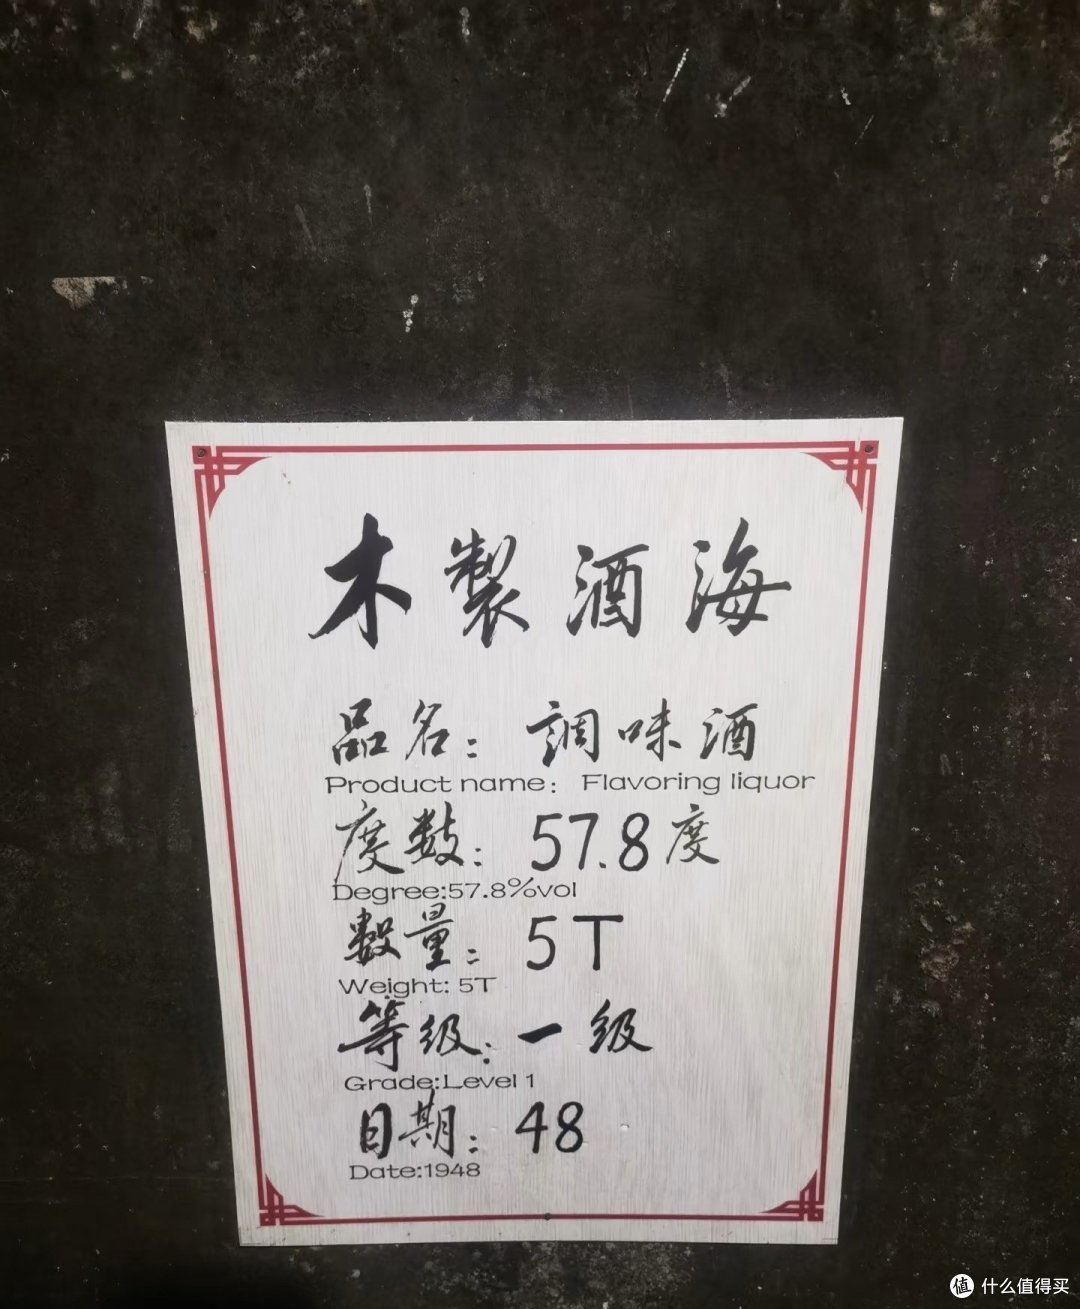 木製酒海
品名：調味酒
Product name：Flavoring liquor
度数：57.8度
Degree:57.8%vol
數量：5T
Weight: 5T
等级：一级
Grade:Level 1
日期：48
Date:1948
值 什么值得买